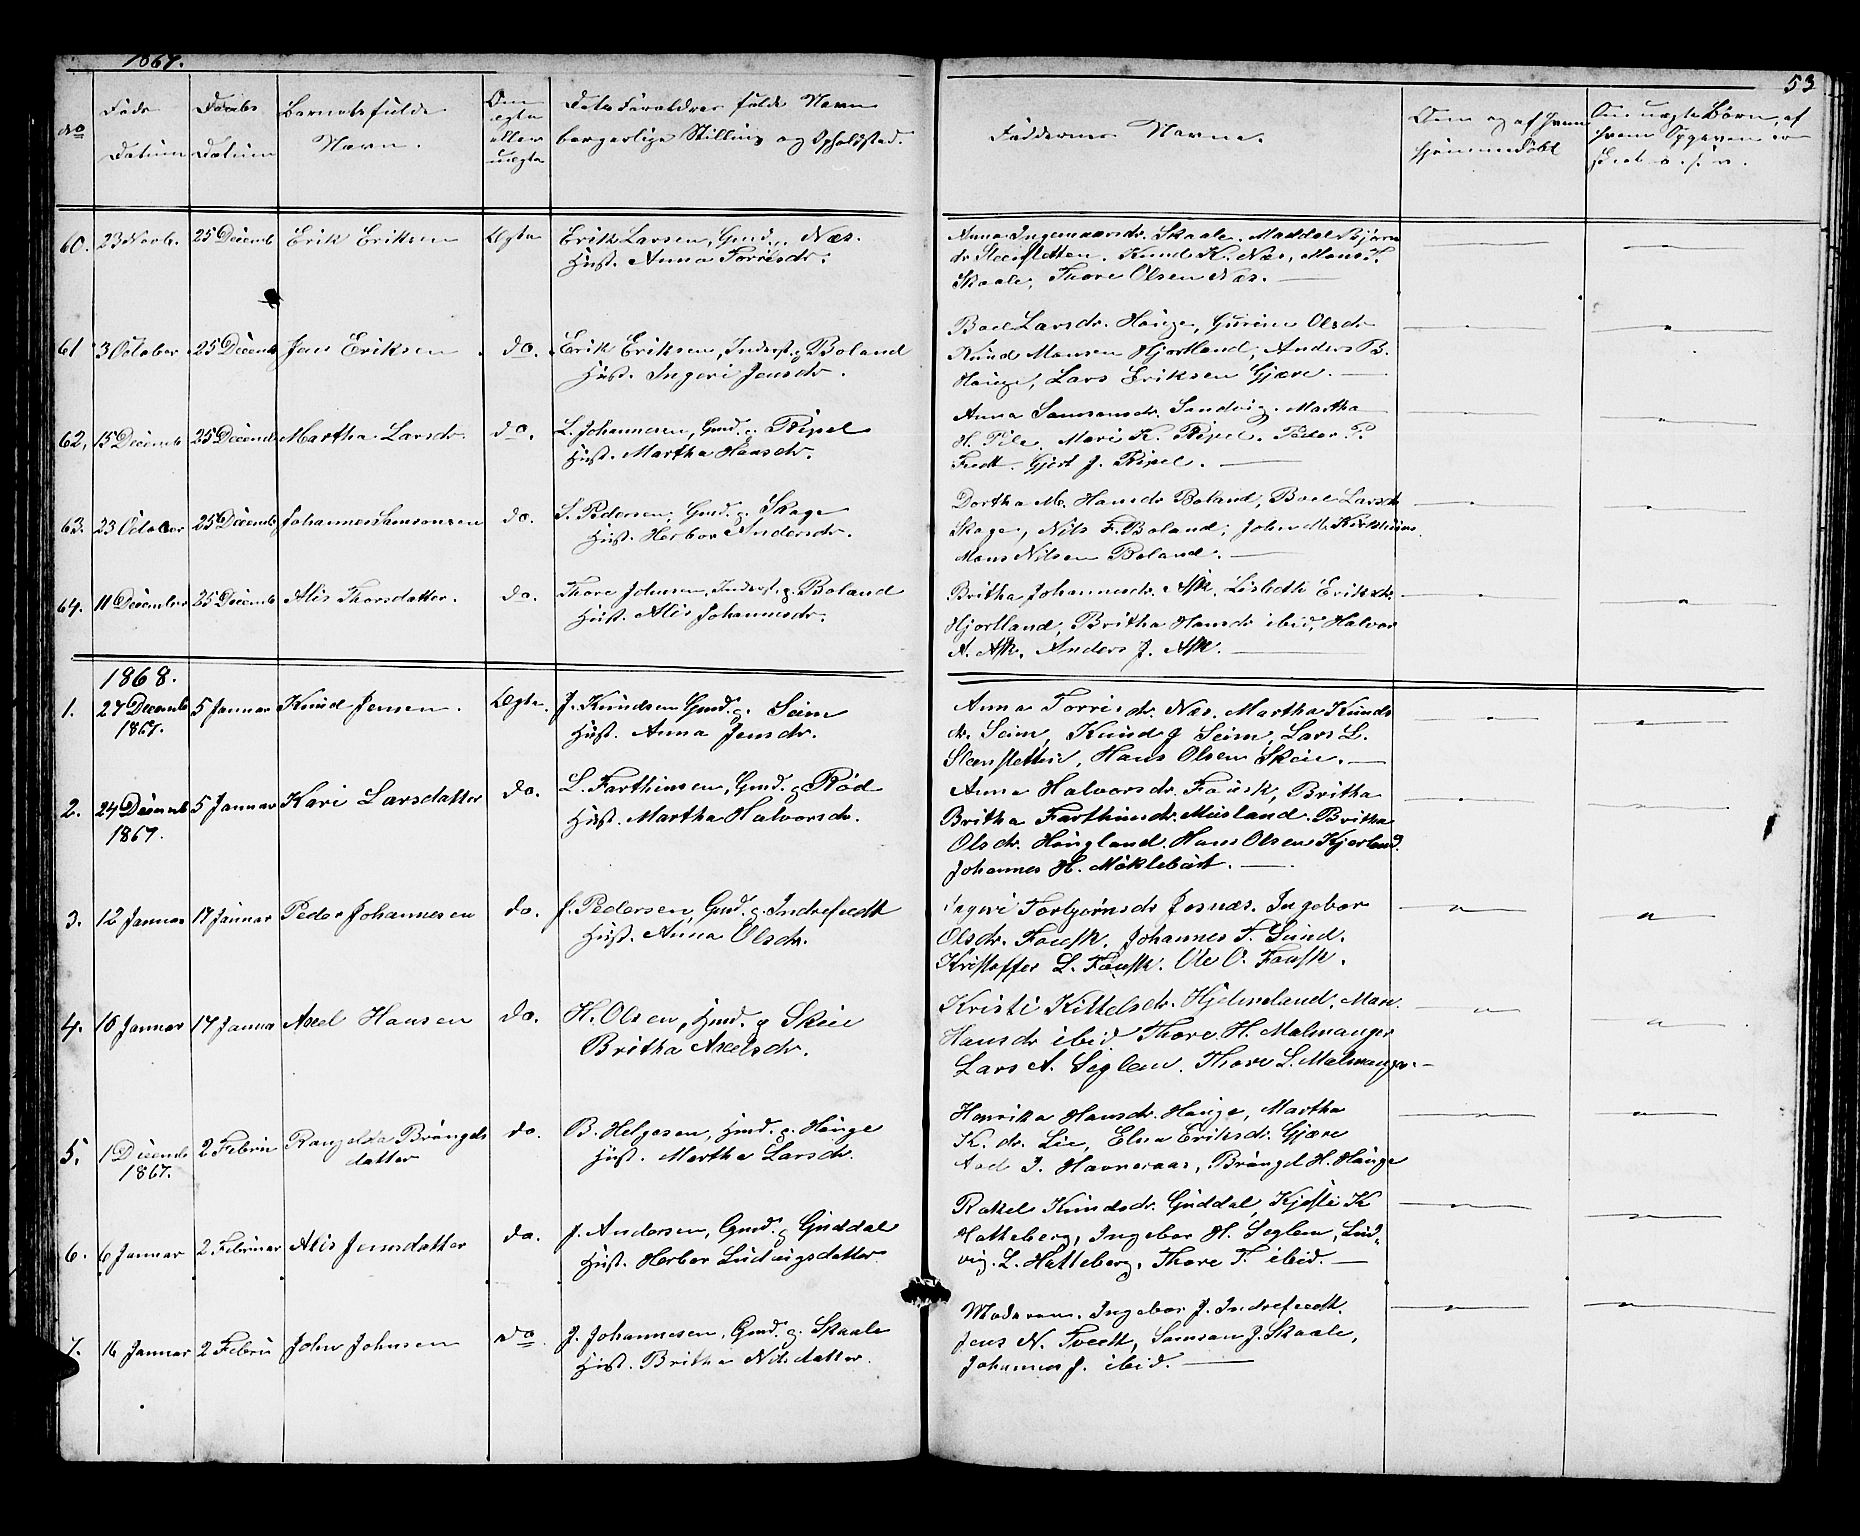 1867.
53
No
Føds
Datum
Daabs
Datum
Barnets fulde
Navn.
Om
ægte
eller
uægte
Dets Forældres fulde Navn
borgerlige Stilling og Opholdsted.
Faddernes Navne.
Om og af hvem
hjemmedøbt
Om uægte Børn, af
hvem Opgaven er
60. 23 Novb. 25 Decemb Erik Eriksen Ægte Erik Larsen, Gmd. Næs.
Hust. Anna Torrisdr.
Anna Ingemaarsdr. Skaale. Maddel Bjørn
dr Steensletten. Knud K. Næs, Mons T.
Skaale, Thore Olsen Næs.
61 3 October 25 Decemb Jens Eriksen do. Erik Eriksen, Inderst. g Boland
Hust. Ingeri Jensdr.
Boel Larsdr. Houge, Gurine Olsdr
Knud Monsen Hjortland, Anders B.
Houge, Lars Eriksen Gjære.
62, 15 Decemb 25 Decemb Martha Larsdr. do. L. Johannesen, Gmd. g Ripel
Hust. Martha Hansdr.
Anna Samsonsdr. Sandvig. Martha
H. Pile, Mari K. Ripel. Peder P.
Tvedt. Gjert J. Ripel.
63. 23 October 25 Decemb Johannes Samsonsen do. S. Pedersen, Gmd. g. Skage
Hust. Herbor Andersdr.
Dortha M. Hansdr Boland, Boel Larsdr
Skage, Nils F. Boland, John M.
Mons Nilsen Boland.
64. 11 December 25 Decemb Alis Thorsdatter. do. Thore Johnsen, Inderst. g. Boland
Hust. Alis Johannesdr.
Britha Johannesdr. Ask, Lisbeth Eriksdr.
Hjortland, Britha Hansdr ibid, Halvor
A. Ask, Anders J. Ask.
1868.
1. 27 Decemb 5 Januar Knud Jensen. Ægte. J. Knudsen Gmd. g. Seim
1867.
Hust. Anna Jensdr.
Anna Torrisdr. Næs. Martha Knuds
dr. Seim, Knud J Seim, Lars L.
Steensletten, Hans Olsen Skeie.
2. 24 Decemb 5 Januar Kari Larsdatter do. L. Farthinsen, Gmd. g Rød
1867.
Hust. Martha Halvorsdr.
Anna Halvorsdr. Fausk, Britha
Britha Farthinsdr. Musland. Britha
Olsdr. Haugland. Hans Olsen Kjerland.
Johannes H. Møklebust.
3. 12 Januar 17 Januar Peder Johannesen do. J. Pedersen, Gmd. g. Indretvedt
Hust. Anna Olsdr.
Ingeri Torbjørnsdr Josnæs. Ingebor
Olsdr. Fausk. Johannes T. Sund.
Kristoffer L. Fausk. Ole O. Fausk.
4. 10 Januar 17 Januar Axel Hansen do. H. Olsen, Hmd. g Skeie
Britha Axelsdr.
Kristi Kittelsdr. Hjelmeland. Mari
Hansdr ibid Thore H. Malmanger
Lars A. Seglem. Thore L. Malmanger.
5. 1 Decemb 2 Februa Rangelda Brøngels do. B. Helgesen, Hmd. g. Houge
1867.
datter
Hust. Martha Larsdr.
Henrika Hansdr. Houge, Martha
K. dr. Lie, Elna Eriksdr. Gjære
Axel I. Havneraas, Brøngel H. Houge
6. 6 Januar 2. Februar Alis Jensdatter do. J. Andersen, Gmd. g Guddal
Hust. Herbor Ludvigsdatter
Rakel Knudsdr. Guddal, Kjesti K
Hatteberg, Ingebor H. Seglem, Lud-
vig. L. Hatteberg, Thore T. ibid.
7. 16 Januar 2 Februa John Johnsen do. J. Johannesen, Gmd. g. Skaale
Hust. Britha Nilsdatter.
Moderen. Ingebor J. Indretvedt.
Jens N. Tvedt, Samson J. Skaale,
Johannes J. ibid.